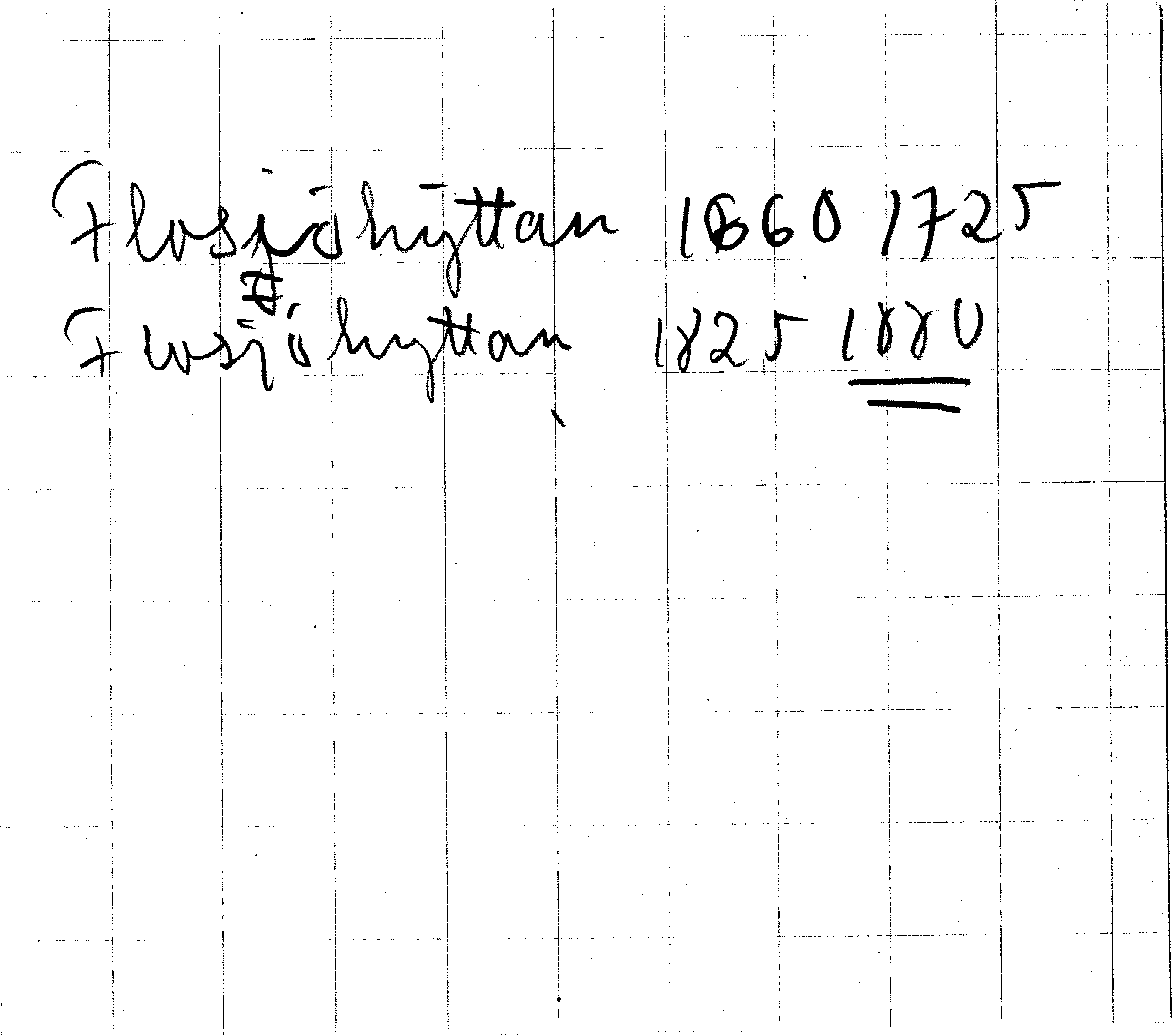 Flosjöhyttan 1660 1725
Flosjöhyttan 1825 1880